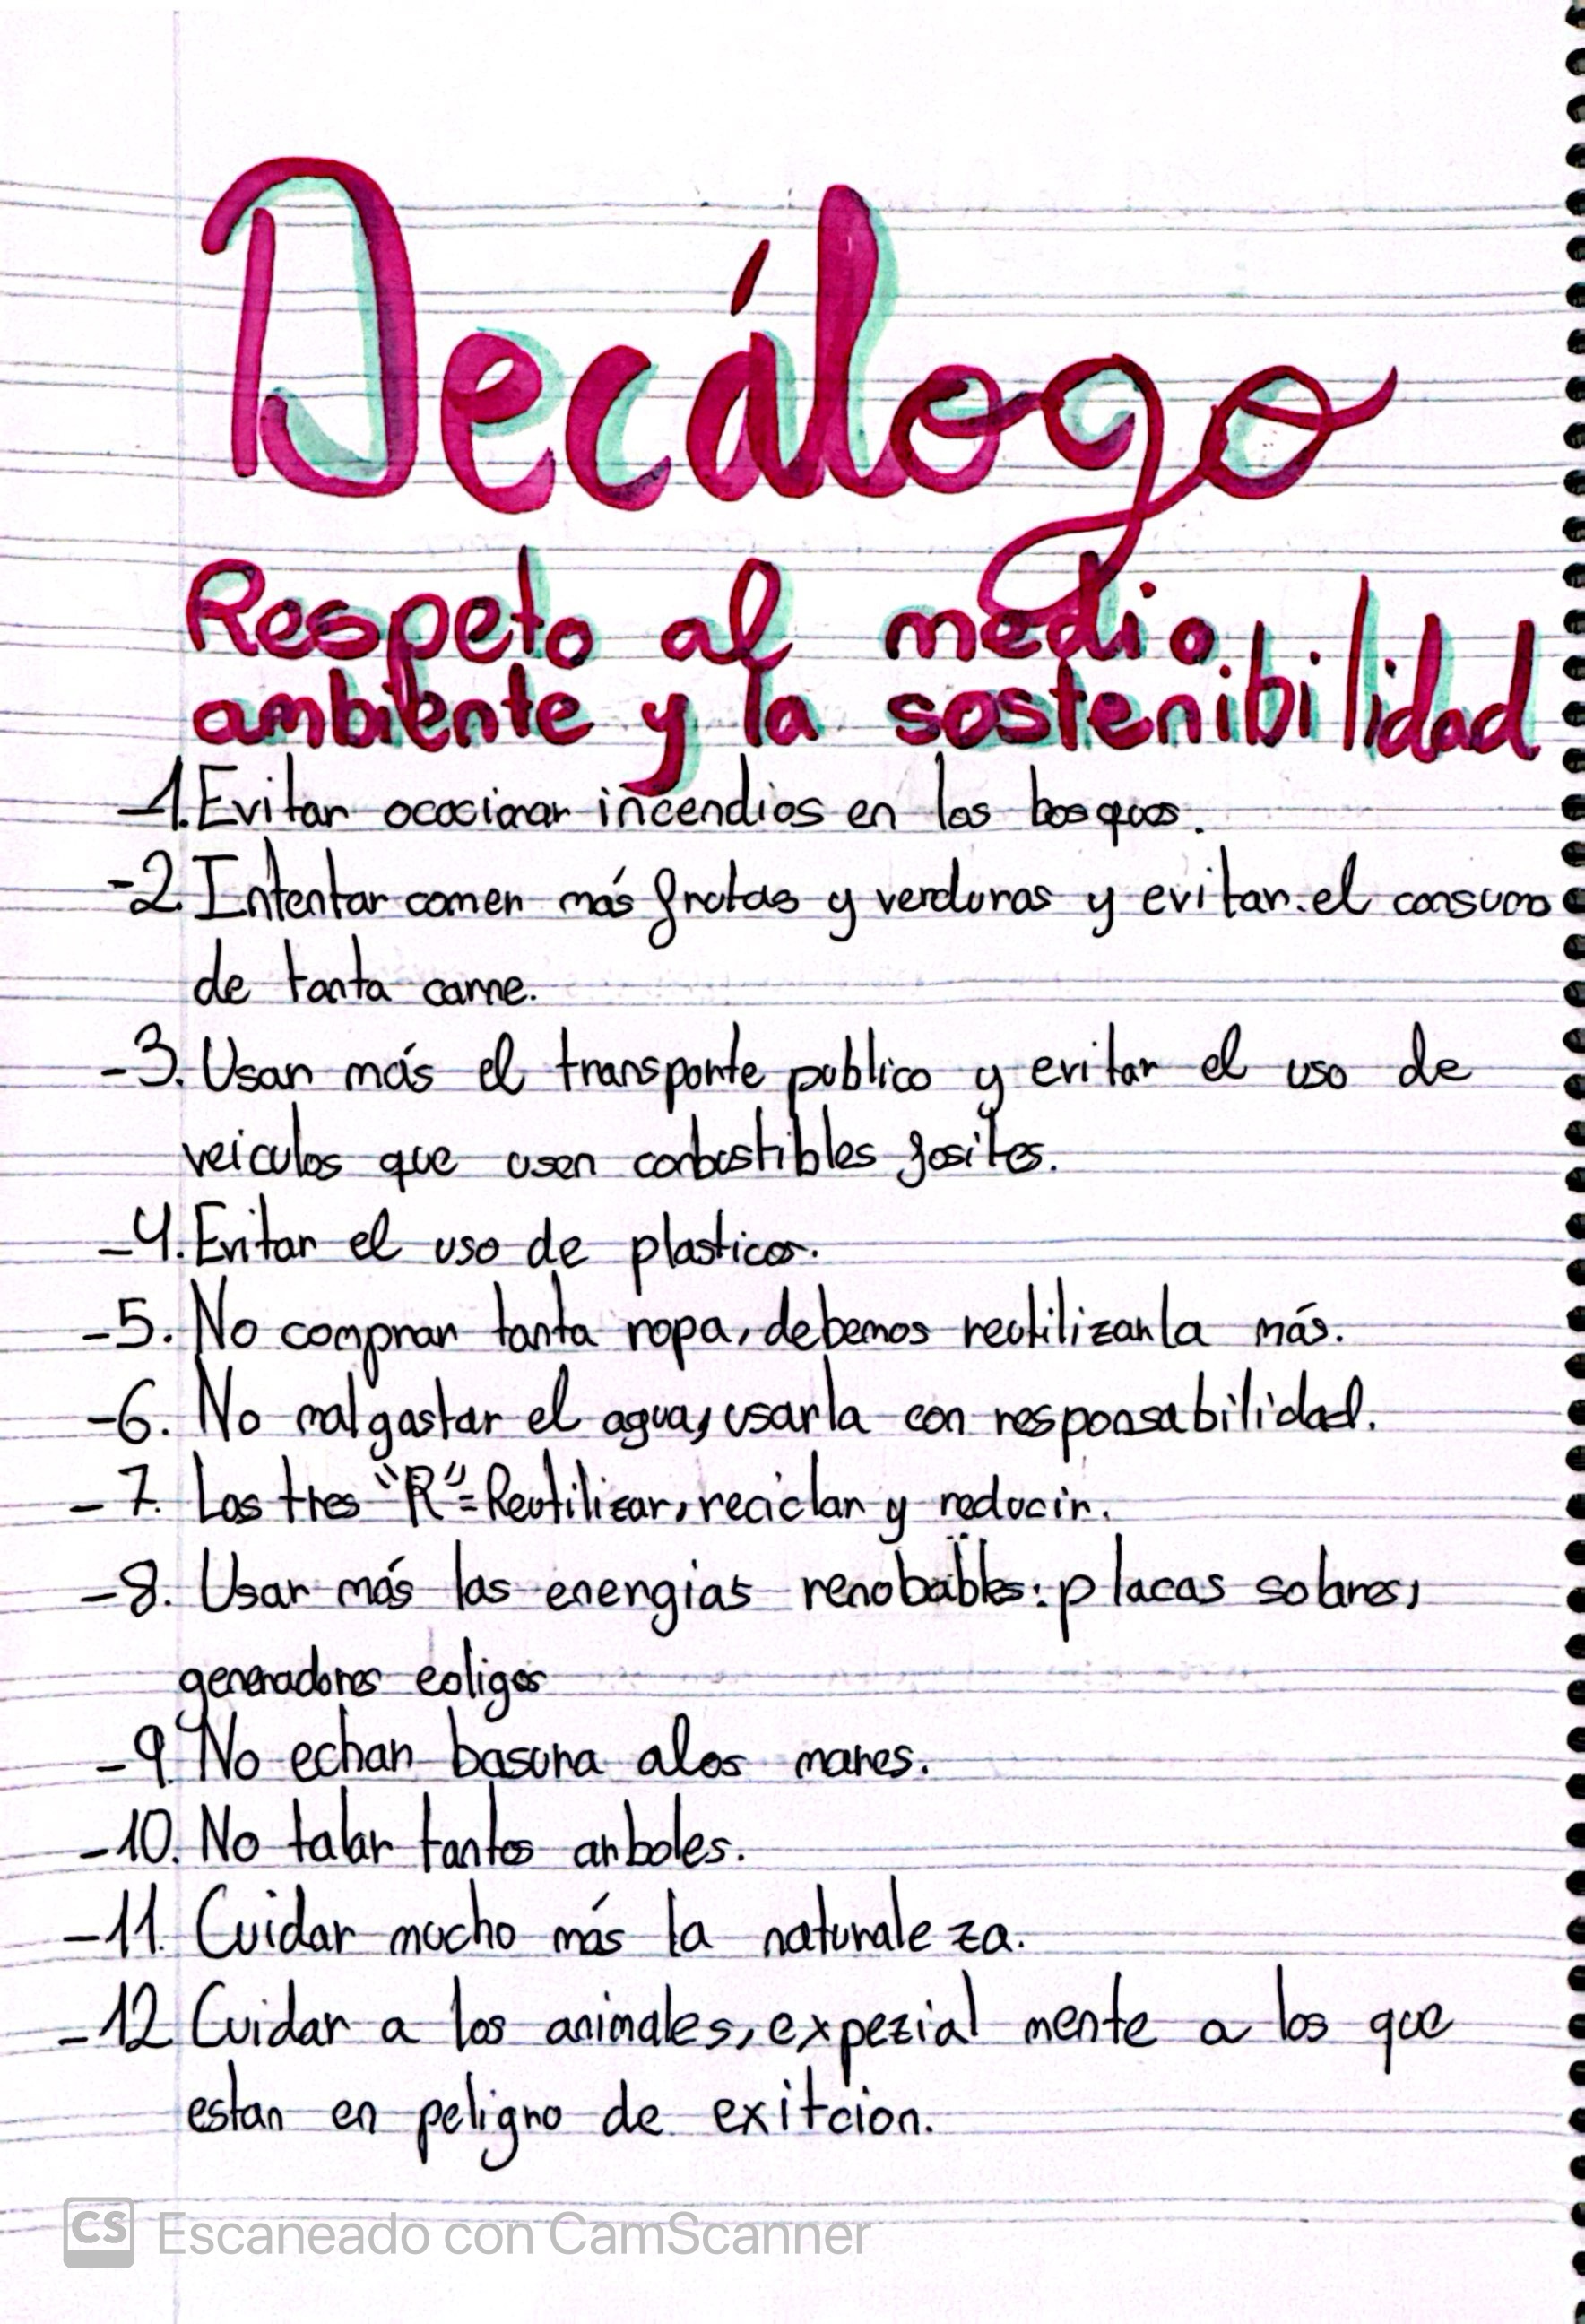 Decálogo
Respeto al medio
ambiente y la sostenibilidad
-1. Evitar ococinar incendios en los bosques.
-2. Intentar comer más frutas y verduras y evitar el consumo
de tanta carne.
-3. Usar más el transporte publico y evitar el uso de
veiculos que usen conbustibles fosiles.
-4. Evitar el uso de plasticos.
-5. No comprar tanta ropa, debemos reutilizarla más.
-6. No malgastar el agua, usarla con responsabilidad.
-7. Las tres "R"= Reutilizar, reciclar y reducir.
-8. Usar más las energias renobables: placas solares,
generadores eoligos
-9. No echar basura alos mares.
-10. No talar tantos arboles.
-11. Cuidar mucho más la naturaleza.
-12 Cuidar a los animales, expezial mente a los que
estan en peligro de exitcion.
CS Escaneado con CamScanner